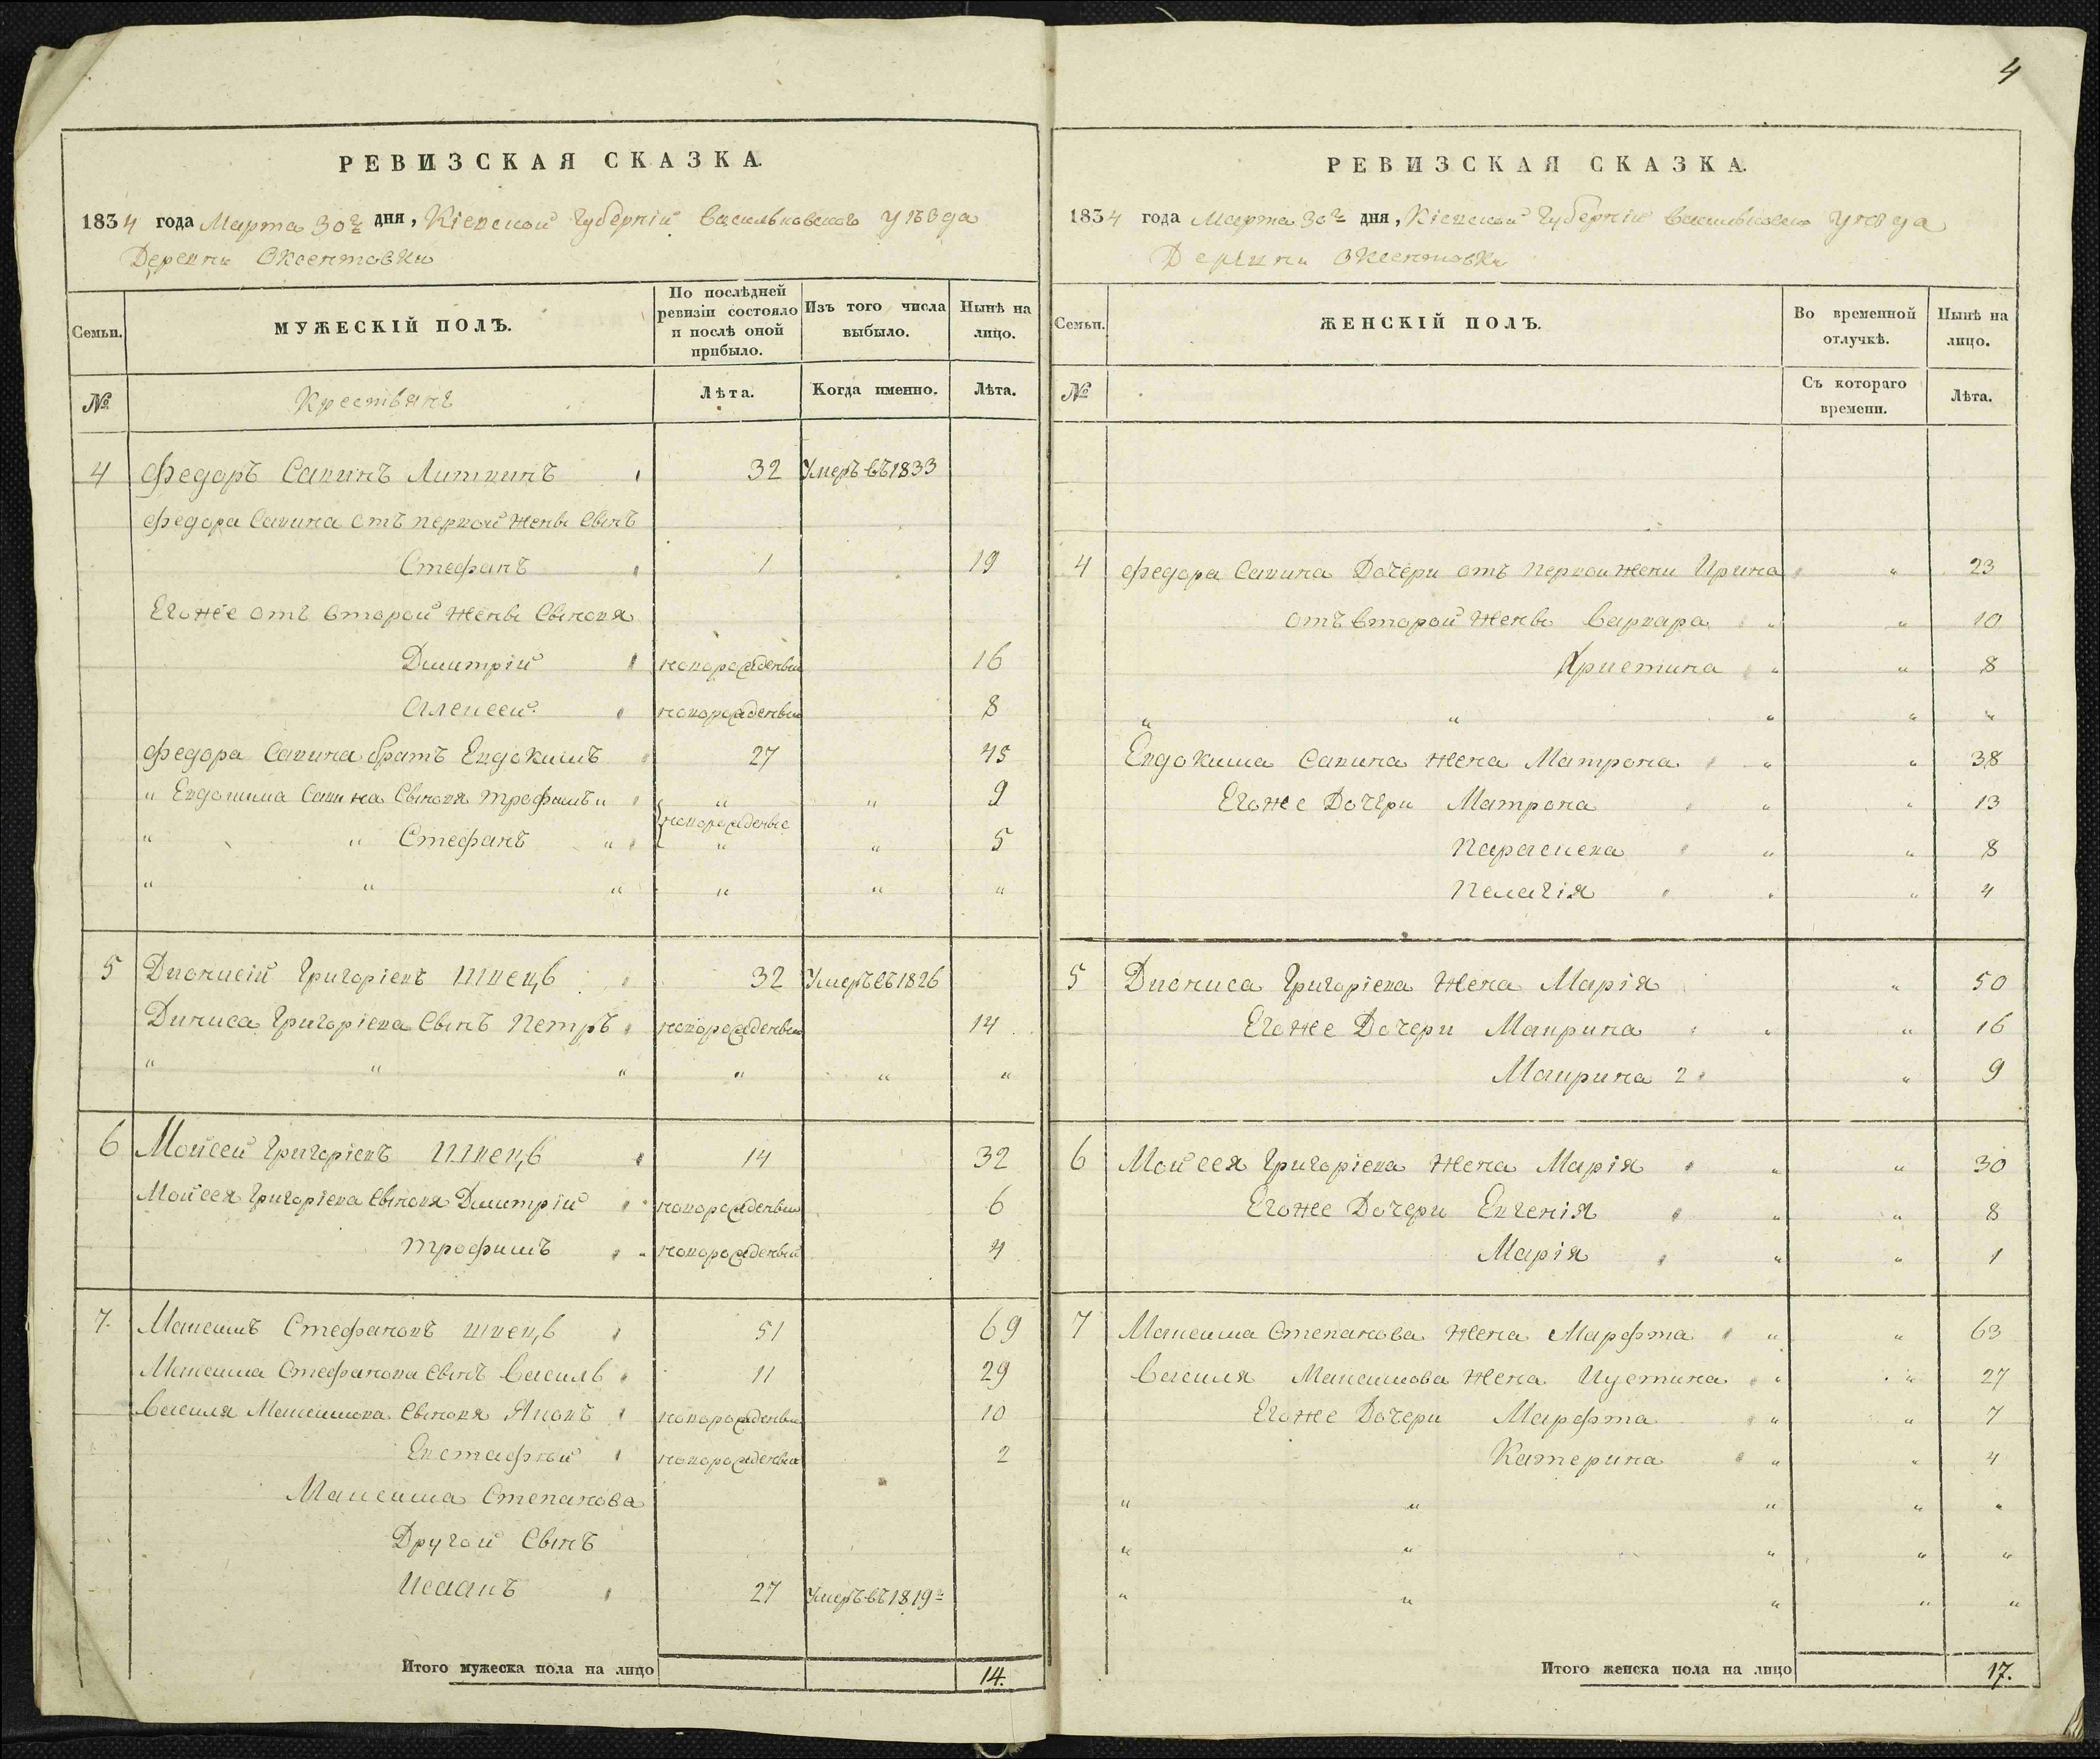 4
РЕВИЗСКАЯ СКАЗКА.
1834 года Марта 30го дня, Кіевской Губерніи Васильковского уѣзда
Деревни Оксентовки
Семьи. МУЖЕСКІЙ ПОЛЪ. По послѣдней ревизіи состояло и послѣ оной прибыло. Изъ того числа выбыло. Нынѣ на лицо.
№ Крестьянъ Лѣта. Когда именно. Лѣта.
4 Федоръ Савинъ 32 Умеръ въ 1833
Федора Савина отъ первой жены сынъ
Стефанъ 1 19
Егоже отъ второй жены сыновя
Дмитрій новорожденый 16
Алексей новорожденый 8
Федора Савина братъ Евдокимъ 27 45
" Евдокима Савина сыновя Трофимъ " " " 9
новорожденые
" " Стефанъ " " " 5
" " " " " "
5 Дионисій Григоріевъ Швець 32 Умеръ въ 1826
Диниса Григоріева сынъ Петръ новорожденый 14
" " " " " "
6 Мойсей Григоріевъ Швець 14 32
Мойсея Григоріева сыновя Дмитрій новорожденый 6
Трофимъ новорожденый 4
7. Максимъ Стефановъ Швець 51 69
Максима Стефанова сынъ Василь 11 29
Василя Максимова сыновя Яковъ новорожденый 10
Евстафий новорожденый 2
Максима Степанова
Другой сынъ
Исаакъ 27 Умеръ въ 1819
Итого мужеска пола на лицо 14.
РЕВИЗСКАЯ СКАЗКА.
1834 года Марта 30го дня, Кіевской Губерніи Васильковского уѣзда
Деревни Оксентовки
Семьи. ЖЕНСКІЙ ПОЛЪ. Во временной отлучкѣ. Нынѣ на лицо.
№ Съ котораго времени. Лѣта.
4 Федора Савина Дочери отъ первой жени Ирина " 23
отъ второй жены Варвара " " 10
Христина " " 8
" " " " "
Евдокима Савина жена Матрона " " 38
Егоже Дочери Матрона " " 13
Параскева " " 8
Пелагія " " 4
5 Диониса Григоріева жена Марія " 50
Егоже Дочери Маврина " " 16
Маврина 2 " 9
6 Мойсея Григоріева жена Марія " " 30
Егоже Дочери Евгенія " " 8
Марія " " 1
7 Максима Степанова жена Марфта " " 63
Василя Максимова жена Иустина " " 27
Егоже Дочери Марфта " " 7
Катерина " " 4
" " " " "
" " " " "
" " " " "
Итого женска пола на лицо 17.